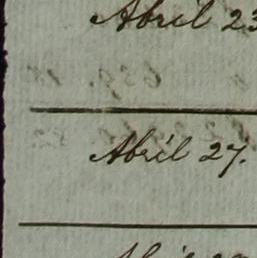 Abril 23
Abril 27.